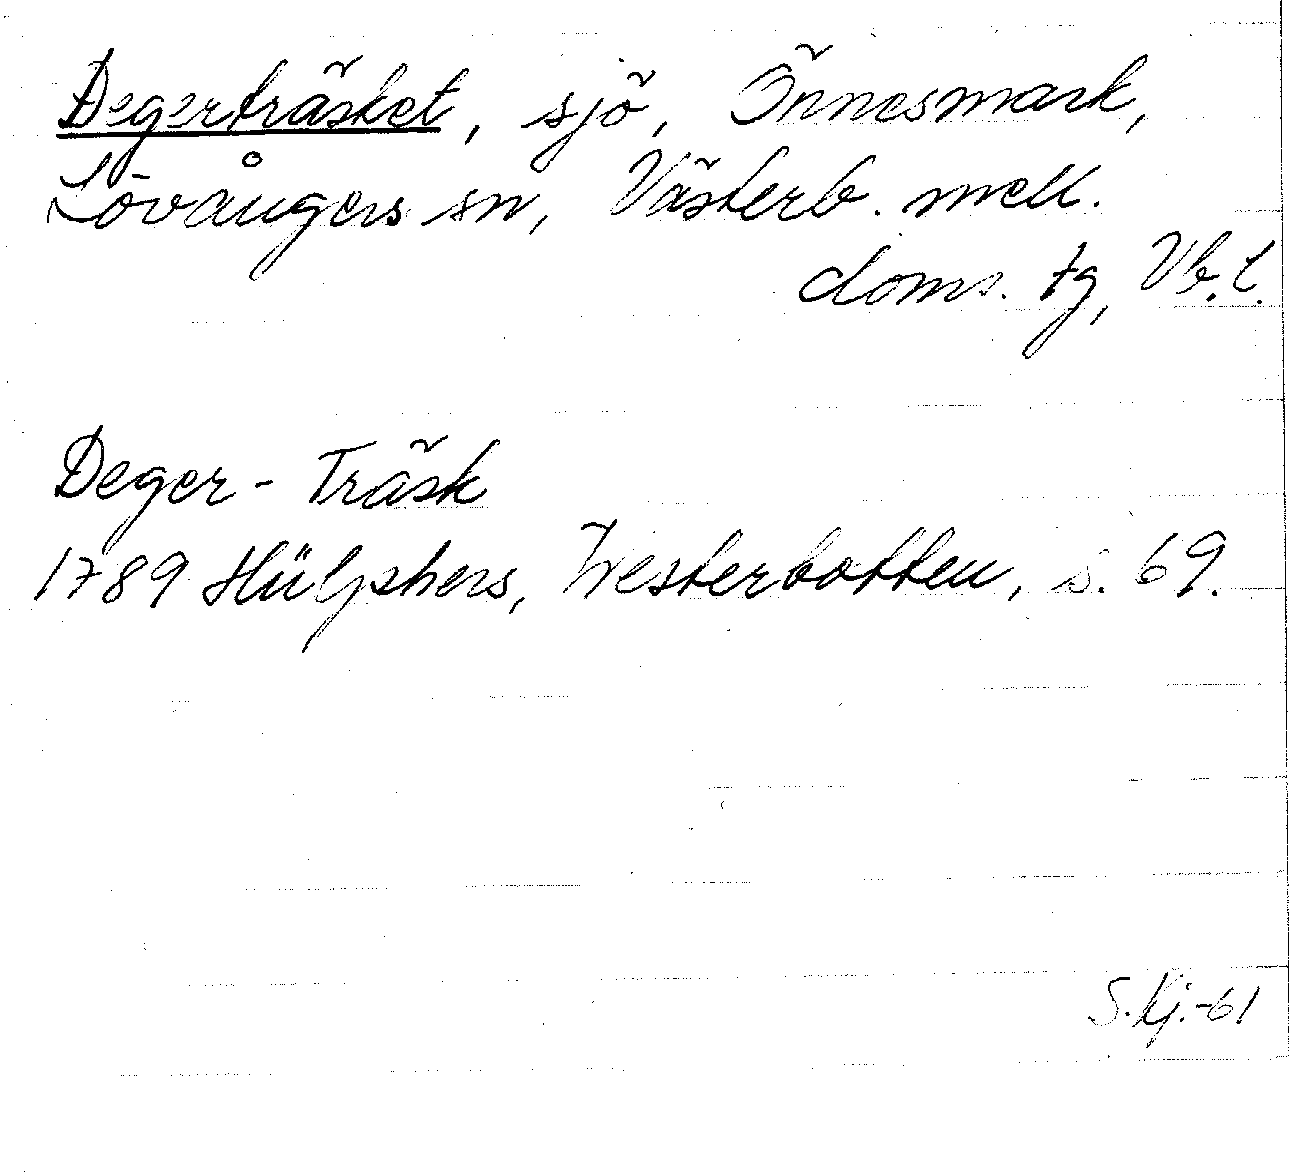 Degerträsket, sjö, Önnesmark,
Lövångers sn, Västerb. mell.
doms. tg, Vb. l.
Deger-Träsk
1789 Hülphers, Westerbotten, s. 69.
S. Kj.-61